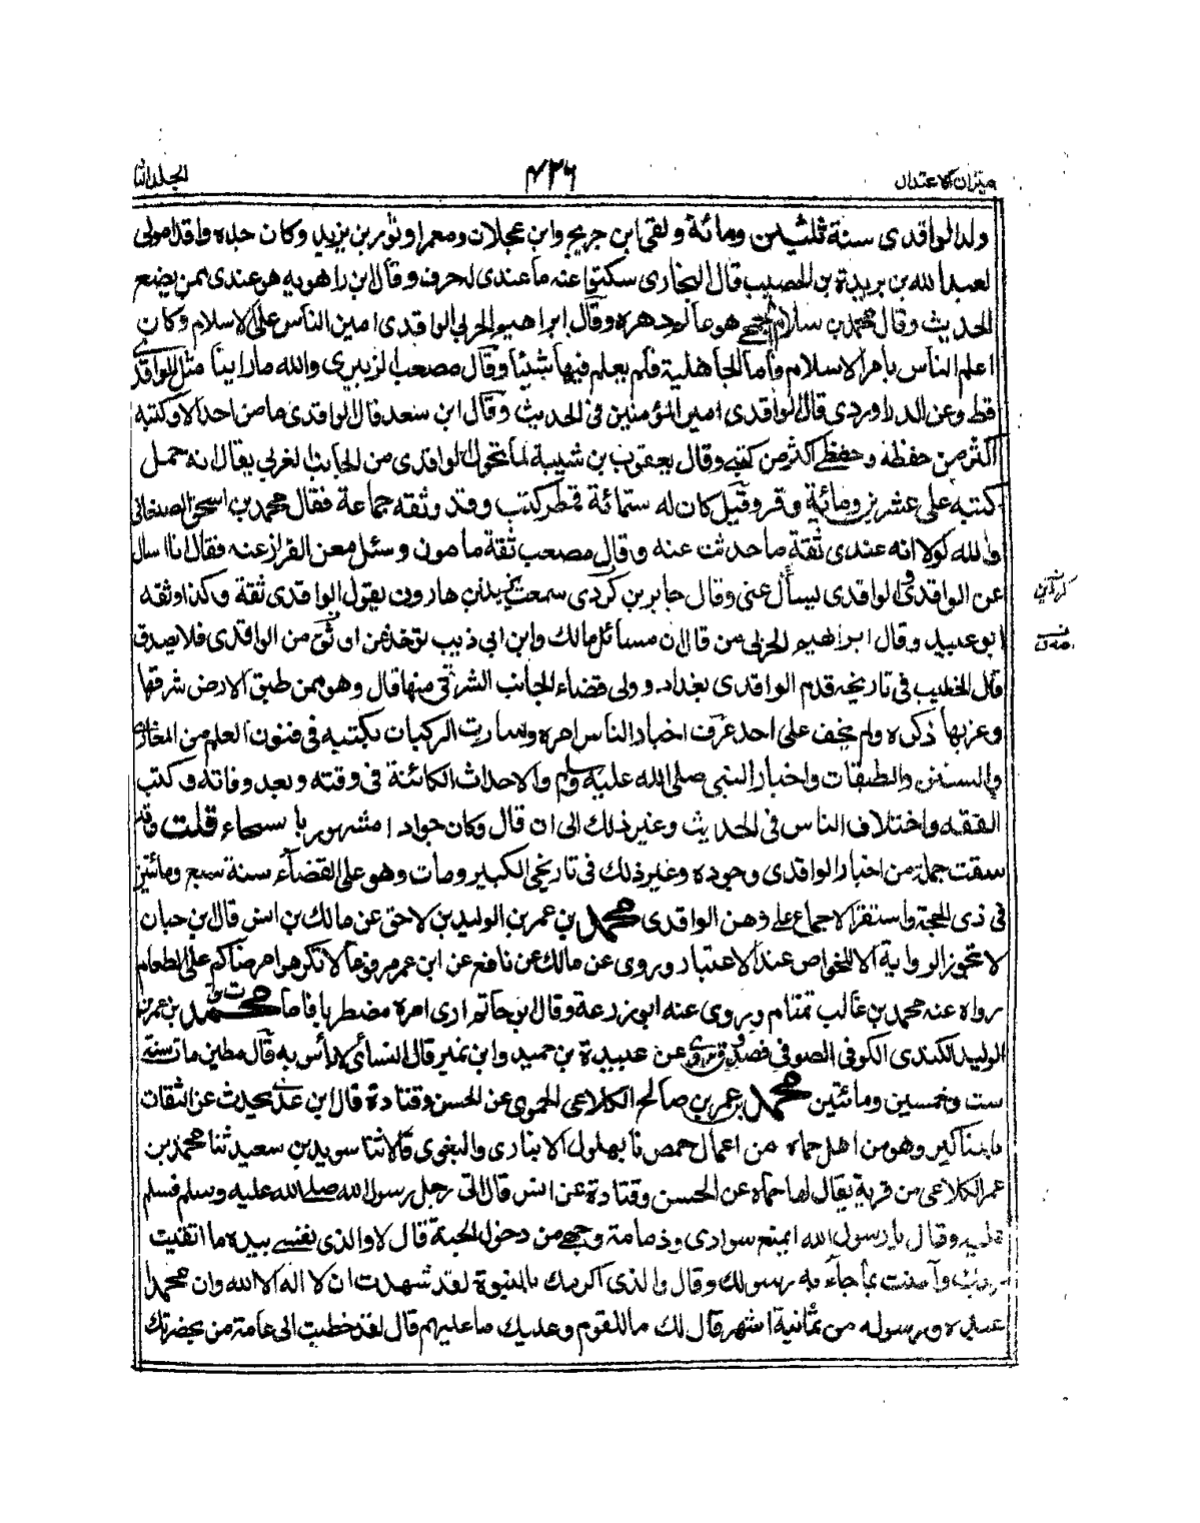 ميزان الاعتدال
۴۲۶
الجلد الثا
ولد الواقدى سنة ثلثين ومائة ولقى ابن جريج وابن عجلان ومعمرا وثور بن يزيد وكان جده واقد مولى
لعبد الله بن بريدة بن الحصيب قال البخارى سكتوا عنه ما عندى له حرف وقال ابن راهويه هو عندى ممن يضع
الحديث وقال محمد بن سلام الجمحى هو عالم دهره وقال ابراهيم الحربى الواقدى امين الناس على الاسلام وكان
اعلم الناس بامر الاسلام واما الجاهلية فلم يعلم فيها شيئا وقال مصعب الزبيرى والله ما راينا مثل الواقدى
قط وعن الدراوردى قال الواقدى امير المؤمنين فى الحديث وقال ابن سعد قال الواقدى ما من احد الا وكتبه
اكثر من حفظه وحفظى اكثر من كتبى وقال يعقوب بن شيبة لما تحول الواقدى من الجانب الغربى يقال انه حمل
كتبه على عشرين ومائة وقر وقيل كان له ستمائة قمطر كتب وقد وثقه جماعة فقال محمد بن اسحق الصغانى
والله لولا انه عندى ثقة ما حدثت عنه وقال مصعب ثقة مامون وسئل معن القزاز عنه فقال انا اسال
عن الواقدى الواقدى يسأل عنى وقال جابر بن كردى سمعت يزيد بن هارون يقول الواقدى ثقة وكذا وثقه
ابو عبيد وقال ابراهيم الحربى من قال ان مسائل مالك وابن ابى ذيب توخذ عن اوثق من الواقدى فلا يصدق
قال الخطيب فى تاريخه قدم الواقدى بغداد وولى قضاء الجانب الشرقى منها قال وهو ممن طبق الارض شرقها
وغربها ذكره ولم يخف على احد عرف اخبار الناس امره وسارت الركبان بكتبه فى فنون العلم من المغازى
والسنن والطبقات واخبار النبى صلى الله عليه وسلم والاحداث الكائنة فى وقته وبعد وفاته وكتب
الفقه واختلاف الناس فى الحديث وغير ذلك الى ان قال وكان جوادا مشهورا بالسخاء قلت وقد
سقت جملة من اخبار الواقدى وجوده وغير ذلك فى تاريخى الكبير ومات وهو على القضآء سنة سبع ومائتين
فى ذى الحجة واستقر الاجماع على وهن الواقدى محمد بن عمر بن الوليد بن لاحق عن مالك بن انس قال ابن حبان
لا تجوز الرواية الا للخواص عند الاعتبار وروى عن مالك عن نافع عن ابن عمر مرفوعا لا تكرهوا مرضاكم على الطعام
رواه عنه محمد بن غالب تمتام وروى عنه ابو زرعة وقال ابن حاتم ارى امره مضطربا فاما محمد بن عمر بن
الوليد الكندى الكوفى الصوفى فصدوق عن عبيدة بن حميد وابن نمير قال النسائى لا باس به قال مطين مات سنة
ست وخمسين ومائتين محمد بن عمر بن صالح الكلاعى الحموى عن الحسن وقتادة قال ابن عدى يحدث عن الثقات
بالمناكير وهو من اهل حماه من اعمال حمص نا بهلول الانبارى والبغوى قالا ثنا سويد بن سعيد ثنا محمد بن
عمر الكلاعى من قرية يقال لها حماه عن الحسن وقتادة عن انس قال اتى رجل رسول الله صلى الله عليه وسلم فسلم
عليه وقال يا رسول الله ايمنع سوادى وذمامة وجهى من دخول الجنة قال لا والذى نفسى بيده ما اتقيت
ربك وآمنت بما جآء به رسولك وقال والذى اكرمك بالنبوة لقد شهدت ان لا اله الا الله وان محمدا
عبده ورسوله من ثمانية اشهر قال لك ما للقوم وعليك ما عليهم قال لقد خطبت الى عامة من بحضرتك